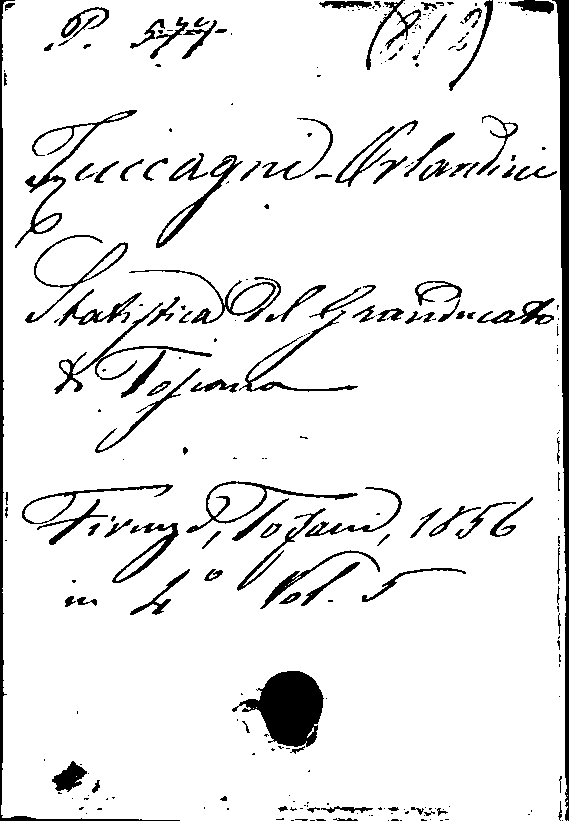 P. 577 (812)
Zuccagni-Orlandini
Statistica del Granducato
di Toscana
Firenze, Tofani, 1856
in 4º Vol. 5